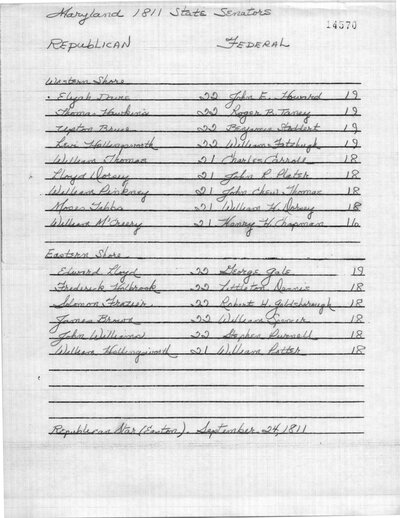 Maryland 1811 State Senators
14570
REPUBLICAN FEDERAL
Western Shore
Elijah Davis 22 John E. Howard 19
Thomas Hawkins 22 Roger B. Taney 19
Upton Bruce 22 Benjamin Stoddert 19
Levi Hollingsworth 22 William Fitzhugh 19
William Thomas 21 Charles Carroll 18
Lloyd Dorsey 21 John R. Plater 18
William Pinkney 21 John Chew Thomas 18
Moses Tabbs 21 William H. Dorsey 18
William McCreery 21 Henry H. Chapman 16
Eastern Shore
Edward Lloyd 22 George Gale 19
Frederick Holbrook 22 Littleton Dennis 18
Solomon Frazier 22 Robert H. Goldsborough 18
James Brown 22 William Spencer 18
John Williams 22 Stephen Purnell 18
William Hollingsworth 21 William Potter 18
Republican Star (Easton). September 24, 1811